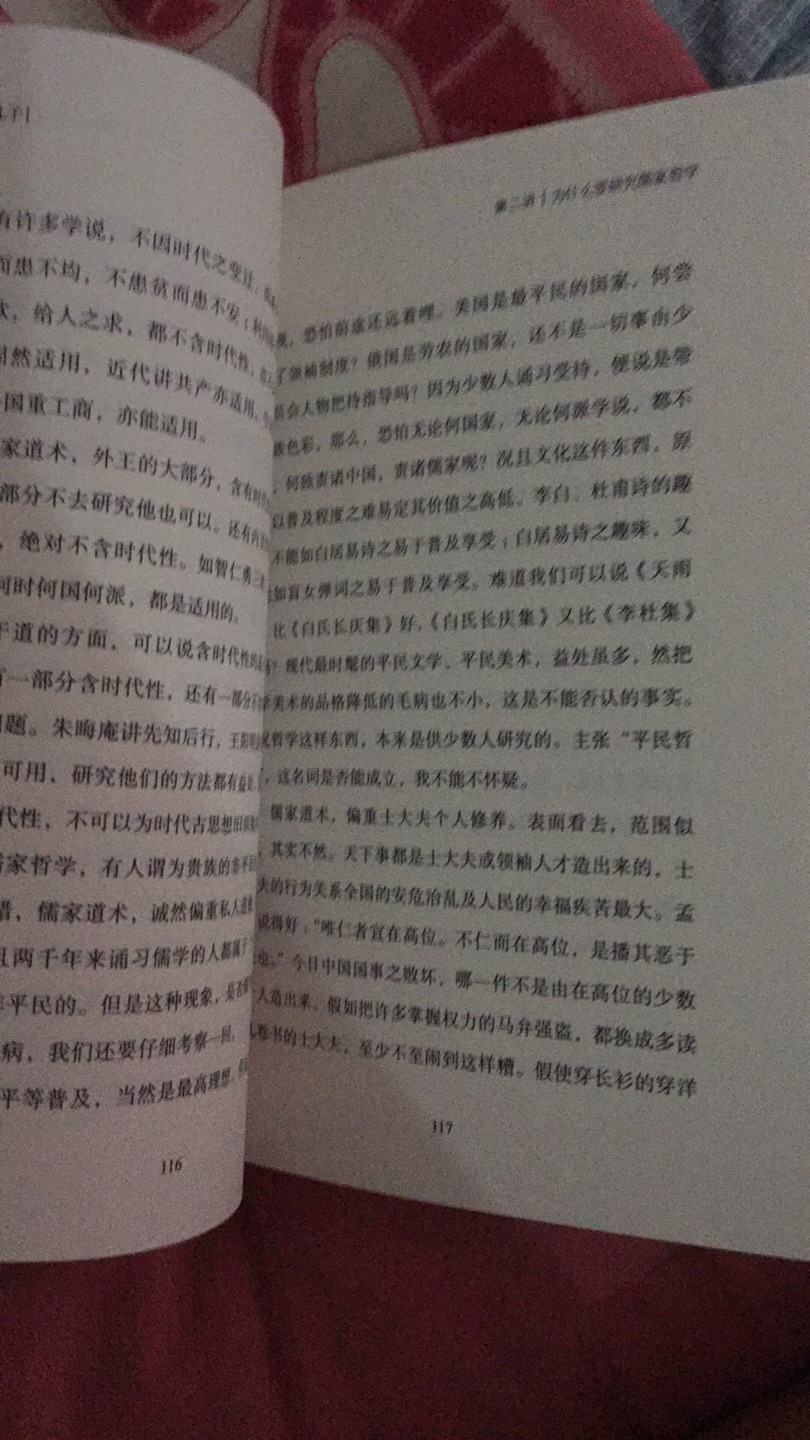 有许多学说，不因时代之变迁，
而患不均，不患贫而患不安；
给人之求，都不含时代性，
固然适用，近代讲共产亦适用，
国重工商，亦能适用。
家道术，外王的大部分，含有时
部分不去研究他也可以。还有内
，绝对不含时代性。如智仁勇三
何时何国何派，都是适用的。
于道的方面，可以说含时代性的
有一部分含时代性，还有一部分不
问题。朱晦庵讲先知后行，王阳明
可用，研究他们的方法都有益处，
代性，不可以为时代古思想旧
儒家哲学，有人谓为贵族的非平民
错，儒家道术，诚然偏重私人道德
且两千年来诵习儒学的人都属于
非平民的。但是这种现象，是否
病，我们还要仔细考察一回。
平等普及，当然是最高理想，
116
第二讲 | 为什么要研究儒家哲学
恐怕前途还远着哩。美国是最平民的国家，何尝
了领袖制度？俄国是劳农的国家，还不是一切事由少
员会人物把持指导吗？因为少数人诵习受持，便说是带
族色彩，那么，恐怕无论何国家，无论何派学说，都不
，何独责诸中国，责诸儒家呢？况且文化这件东西，原
以普及程度之难易定其价值之高低。李白、杜甫诗的趣
不能如白居易诗之易于普及享受；白居易诗之趣味，又
如盲女弹词之易于普及享受。难道我们可以说《天雨
比《白氏长庆集》好，《白氏长庆集》又比《李杜集》
？现代最时髦的平民文学、平民美术，益处虽多，然把
学美术的品格降低的毛病也不小，这是不能否认的事实。
哲学这样东西，本来是供少数人研究的。主张“平民哲
，这名词是否能成立，我不能不怀疑。
儒家道术，偏重士大夫个人修养。表面看去，范围似
，其实不然。天下事都是士大夫或领袖人才造出来的，士
夫的行为关系全国的安危治乱及人民的幸福疾苦最大。孟
说得好：“唯仁者宜在高位。不仁而在高位，是播其恶于
也。”今日中国国事之败坏，哪一件不是由在高位的少数
人造出来。假如把许多掌握权力的马弁强盗，都换成多读
书的士大夫，至少不至闹到这样糟。假使穿长衫的穿洋
117